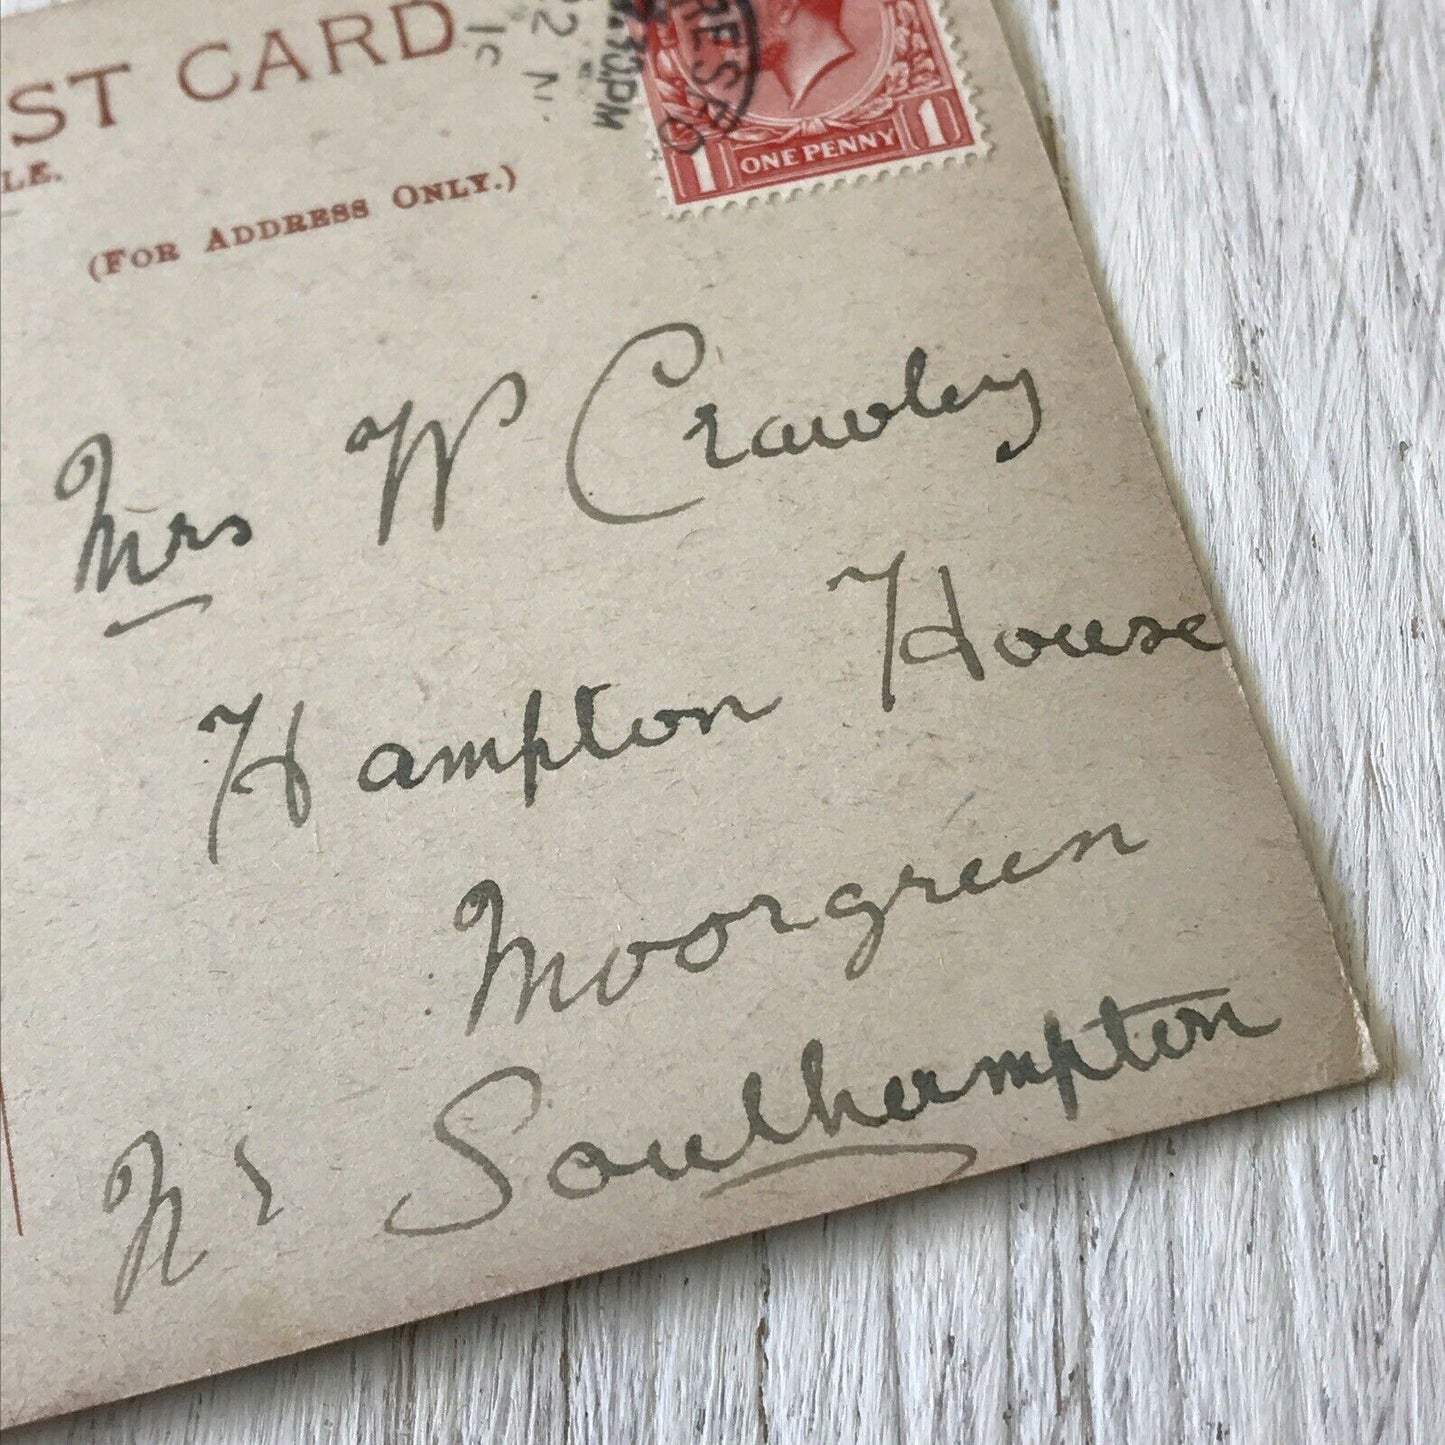 ST CARD
LE.
(FOR ADDRESS ONLY.)
30PM
22 N
19
1 ONE PENNY 1
Mrs W Crawley
Hampton House
Moorgreen
Nr Southampton